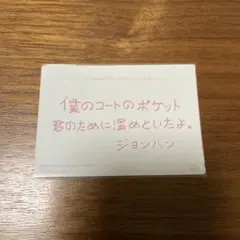 僕のコートのポケット
君のために温めといたよ。
ジョンハン